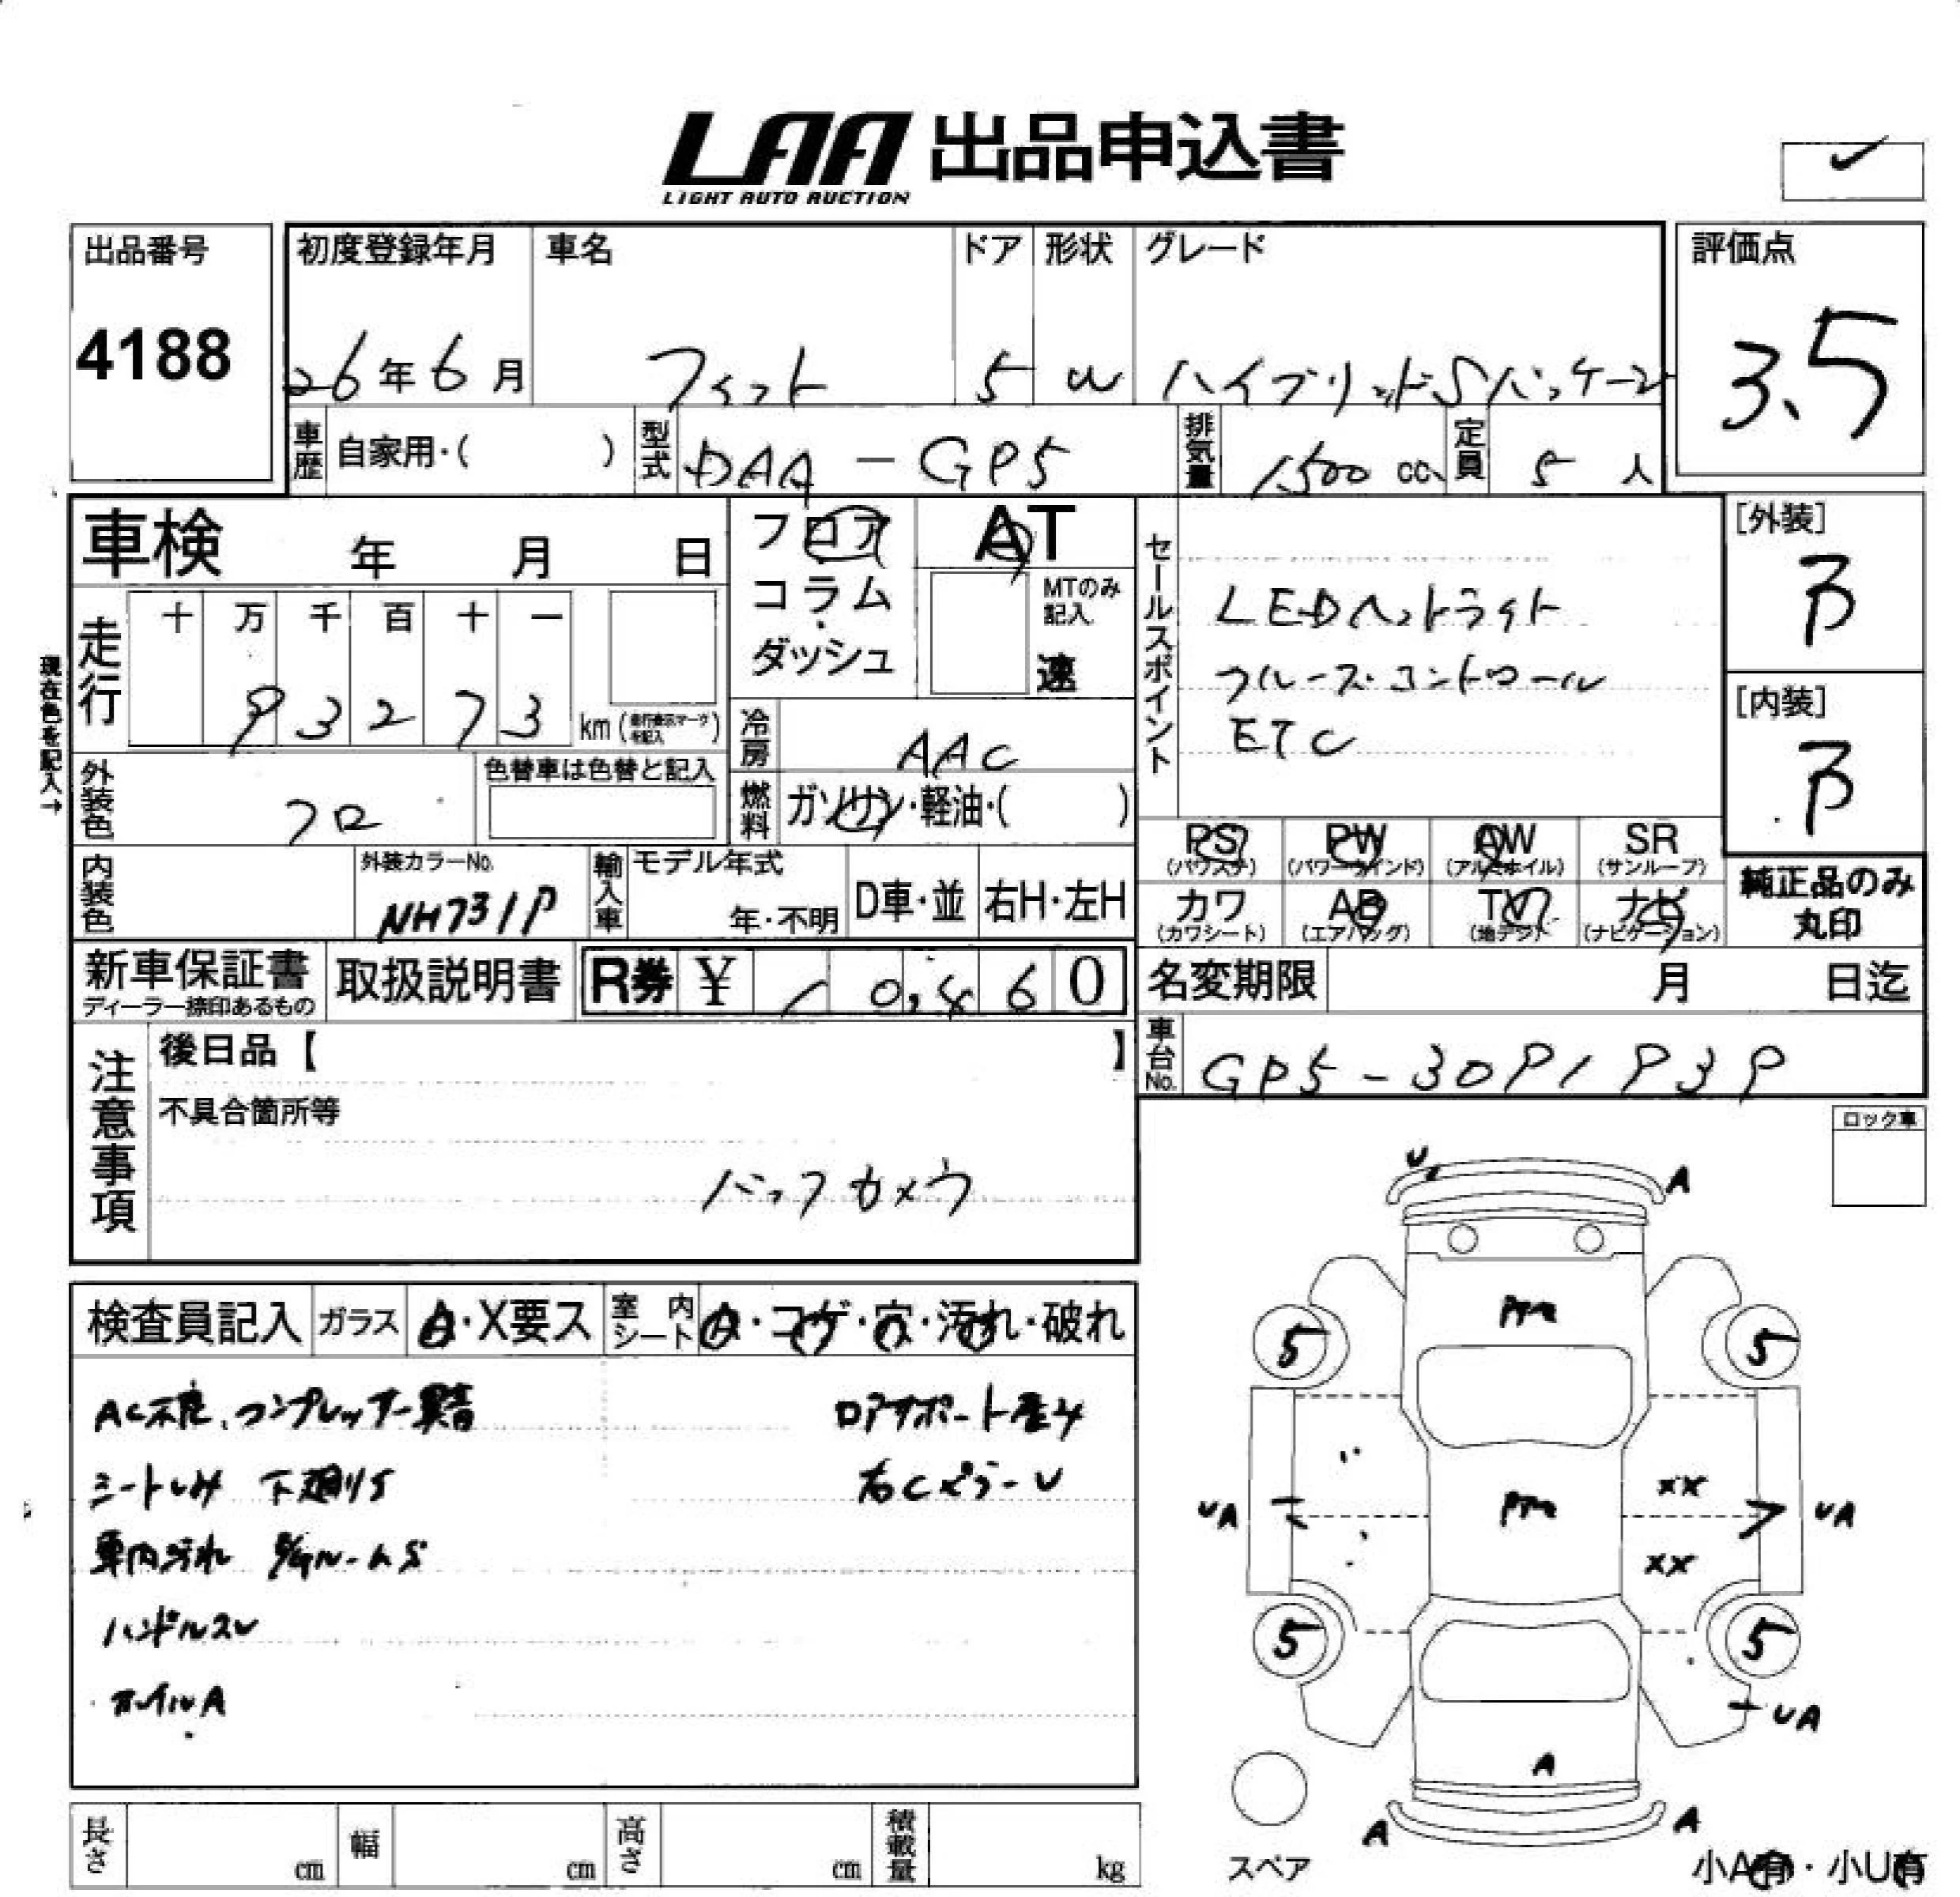 LAA 出品申込書
LIGHT AUTO AUCTION
出品番号
4188
初度登録年月
26年6月
車名
フィット
ドア
5
形状
W
グレード
ハイブリッドSパッケージ
評価点
3.5
車歴 自家用・( )
型式 DAA-GP5
排気量 1500 cc
定員 5 人
車検 年 月 日
フロア
コラム
ダッシュ
AT
MTのみ記入
速
セールスポイント
LEDヘットライト
クルーズ・コントロール
ETC
[外装]
B
[内装]
B
走行
十 万 千 百 十 一
9 3 2 7 3 km (走行表示マークを記入)
現在色を記入→
冷房 AAC
外装色 クロ
色替車は色替と記入
燃料 ガソリン・軽油・( )
内装色
外装カラーNo.
NH731P
輸入車
モデル年式
年・不明
D車・並
右H・左H
PS
(パワステ)
PW
(パワーウインド)
AW
(アルミホイル)
SR
(サンルーフ)
カワ
(カワシート)
AB
(エアバッグ)
TV
(地デジ)
ナビ
(ナビゲーション)
純正品のみ
丸印
新車保証書
ディーラー捺印あるもの
取扱説明書
R券 ¥ 10,460
名変期限 月 日迄
車台No. GP5-3091939
注意事項
後日品【 】
不具合箇所等
バックカメラ
ロック車
検査員記入
ガラス
A・X要ス
室内シート
A・コゲ・穴・汚れ・破れ
AC不良、コンプレッサー異音
ロアサポート歪み
シートしみ 下廻りS
右CピラーU
車内汚れ E/GルームS
ハンドルスレ
ホイルA
U
A
5
5
UA
XX
UA
XX
5
5
UA
A
A
A
スペア
小A有・小U有
長さ cm
幅 cm
高さ cm
積載量 kg